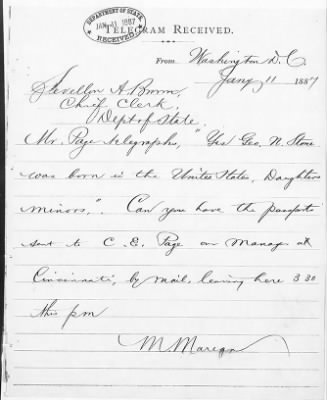 DEPARTMENT OF STATE
JAN 11 1887
RECEIVED
TELEGRAM RECEIVED.
From Washington D.C
Jany 11 1887
Sevellon A. Brown,
Chief Clerk,
Dept of State.
Mr. Page telegraphs, "Yes Geo. N. Stone
was born in the United States, Daughters
minors,". Can you have the passport
sent to C. E. Page or Manager at
Cincinnati, by mail, leaving here 3 30
this pm
M. Marean